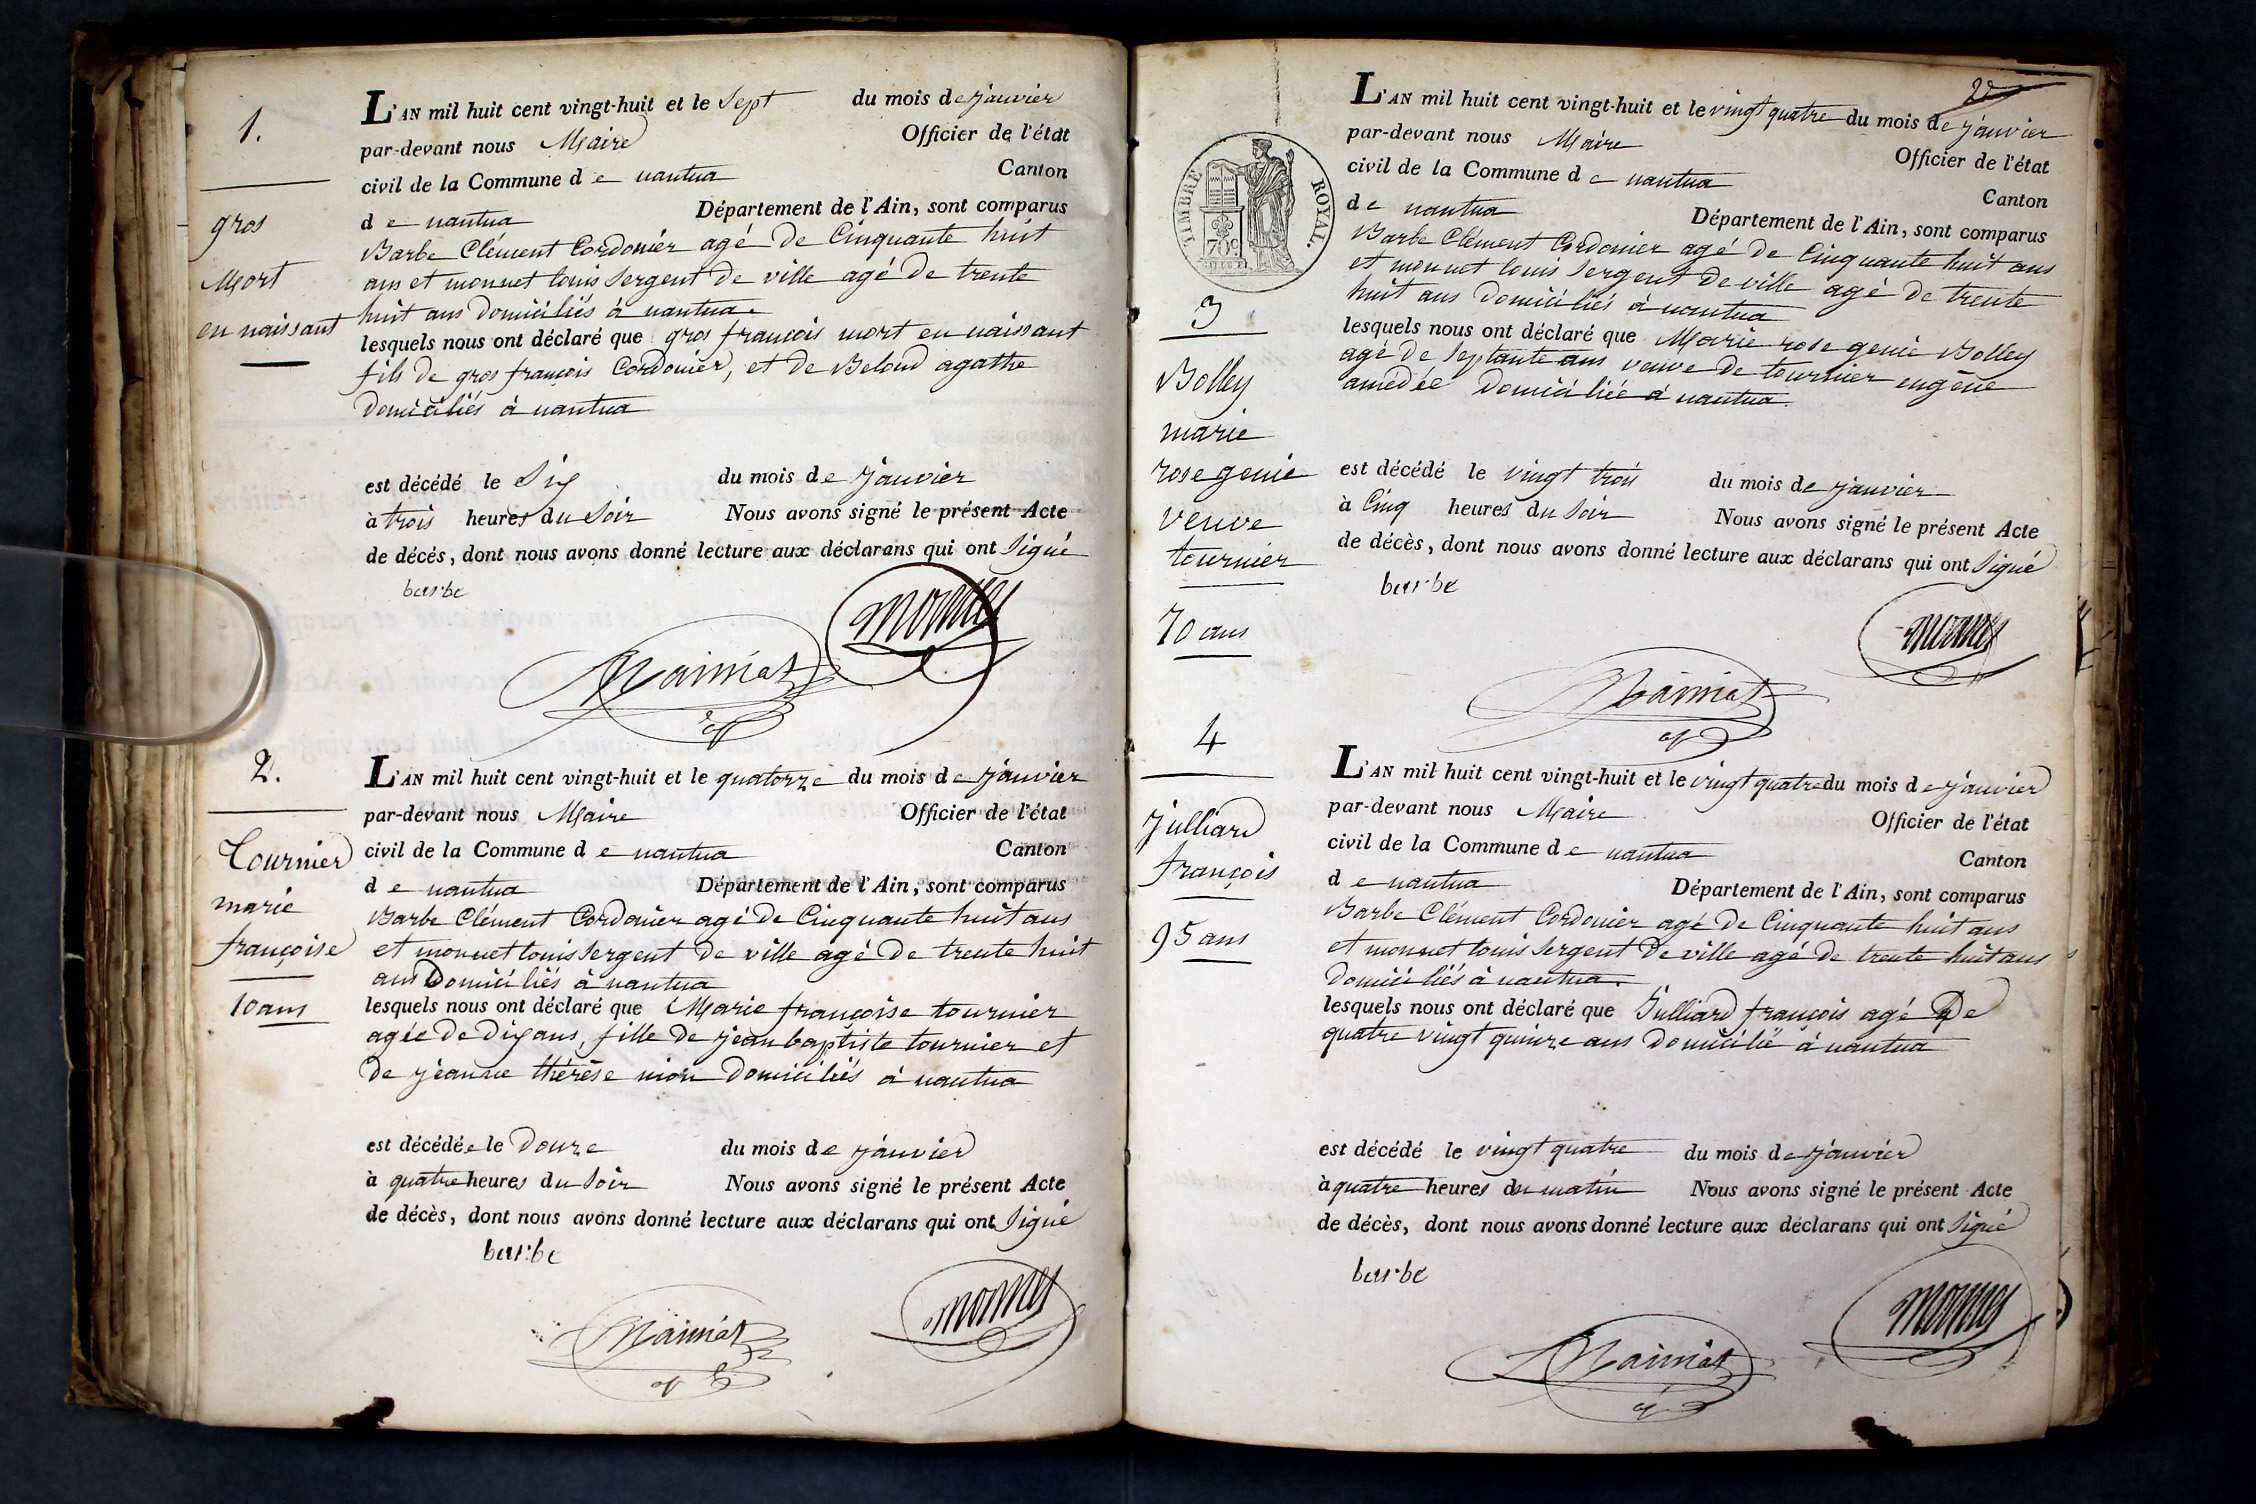 1.
gros
Mort
en naissant
L'AN mil huit cent vingt-huit et le Sept du mois de janvier
par-devant nous Maire Officier de l'état
civil de la Commune de nantua Canton
de nantua Département de l'Ain, sont comparus
Barbe Clément Cordonier agé de Cinquante huit
ans et monnet louis Sergent de ville agé de trente
huit ans domiciliés à nantua.
lesquels nous ont déclaré que gros françois mort en naissant
fils de gros françois Cordonier, et de Beloud agathe
domiciliés à nantua
est décédé le Six du mois de janvier
à trois heures du Soir Nous avons signé le présent Acte
de décés, dont nous avons donné lecture aux déclarans qui ont Signé
barbe
monnet
2.
Tournier
marie
françoise
10 ans
L'AN mil huit cent vingt-huit et le quatorze du mois de janvier
par-devant nous Maire Officier de l'état
civil de la Commune de nantua Canton
de nantua Département de l'Ain, sont comparus
Barbe Clément Cordonier agé de Cinquante huit ans
et monnet louis Sergent de ville agé de trente huit
ans Domiciliés à nantua
lesquels nous ont déclaré que Marie françoise tournier
agée de dix ans, fille de jean baptiste tournier et
de jeanne thérèse domiciliés à nantua
est décédée le douze du mois de janvier
à quatre heures du Soir Nous avons signé le présent Acte
de décès, dont nous avons donné lecture aux déclarans qui ont Signé
barbe
monnet
2
TIMBRE ROYAL.
70c
3
Bolley
marie
rose genie
veuve
tournier
70 ans
L'AN mil huit cent vingt-huit et le vingt quatre du mois de janvier
par-devant nous Maire Officier de l'état
civil de la Commune de nantua Canton
de nantua Département de l'Ain, sont comparus
Barbe Clément Cordonier agé de Cinquante huit ans
et monnet louis Sergent de ville agé de trente
huit ans domiciliés à nantua
lesquels nous ont déclaré que Marie rose genie Bolley
agé de Septante ans veuve de tournier eugène
amedée Domiciliée à nantua.
est décédé le vingt trois du mois de janvier
à Cinq heures du Soir Nous avons signé le présent Acte
de décès, dont nous avons donné lecture aux déclarans qui ont Signé
barbe
monnet
4
julliard
françois
95 ans
L'AN mil huit cent vingt-huit et le vingt quatre du mois de janvier
par-devant nous Maire Officier de l'état
civil de la Commune de nantua Canton
de nantua Département de l'Ain, sont comparus
Barbe Clément Cordonier agé de Cinquante huit ans
et monnet louis Sergent de ville agé de trente huit ans
domiciliés à nantua.
lesquels nous ont déclaré que Julliard françois agé De
quatre vingt quinze ans domicilié à nantua
est décédé le vingt quatre du mois de janvier
à quatre heures du matin Nous avons signé le présent Acte
de décès, dont nous avons donné lecture aux déclarans qui ont Signé
barbe
monnet